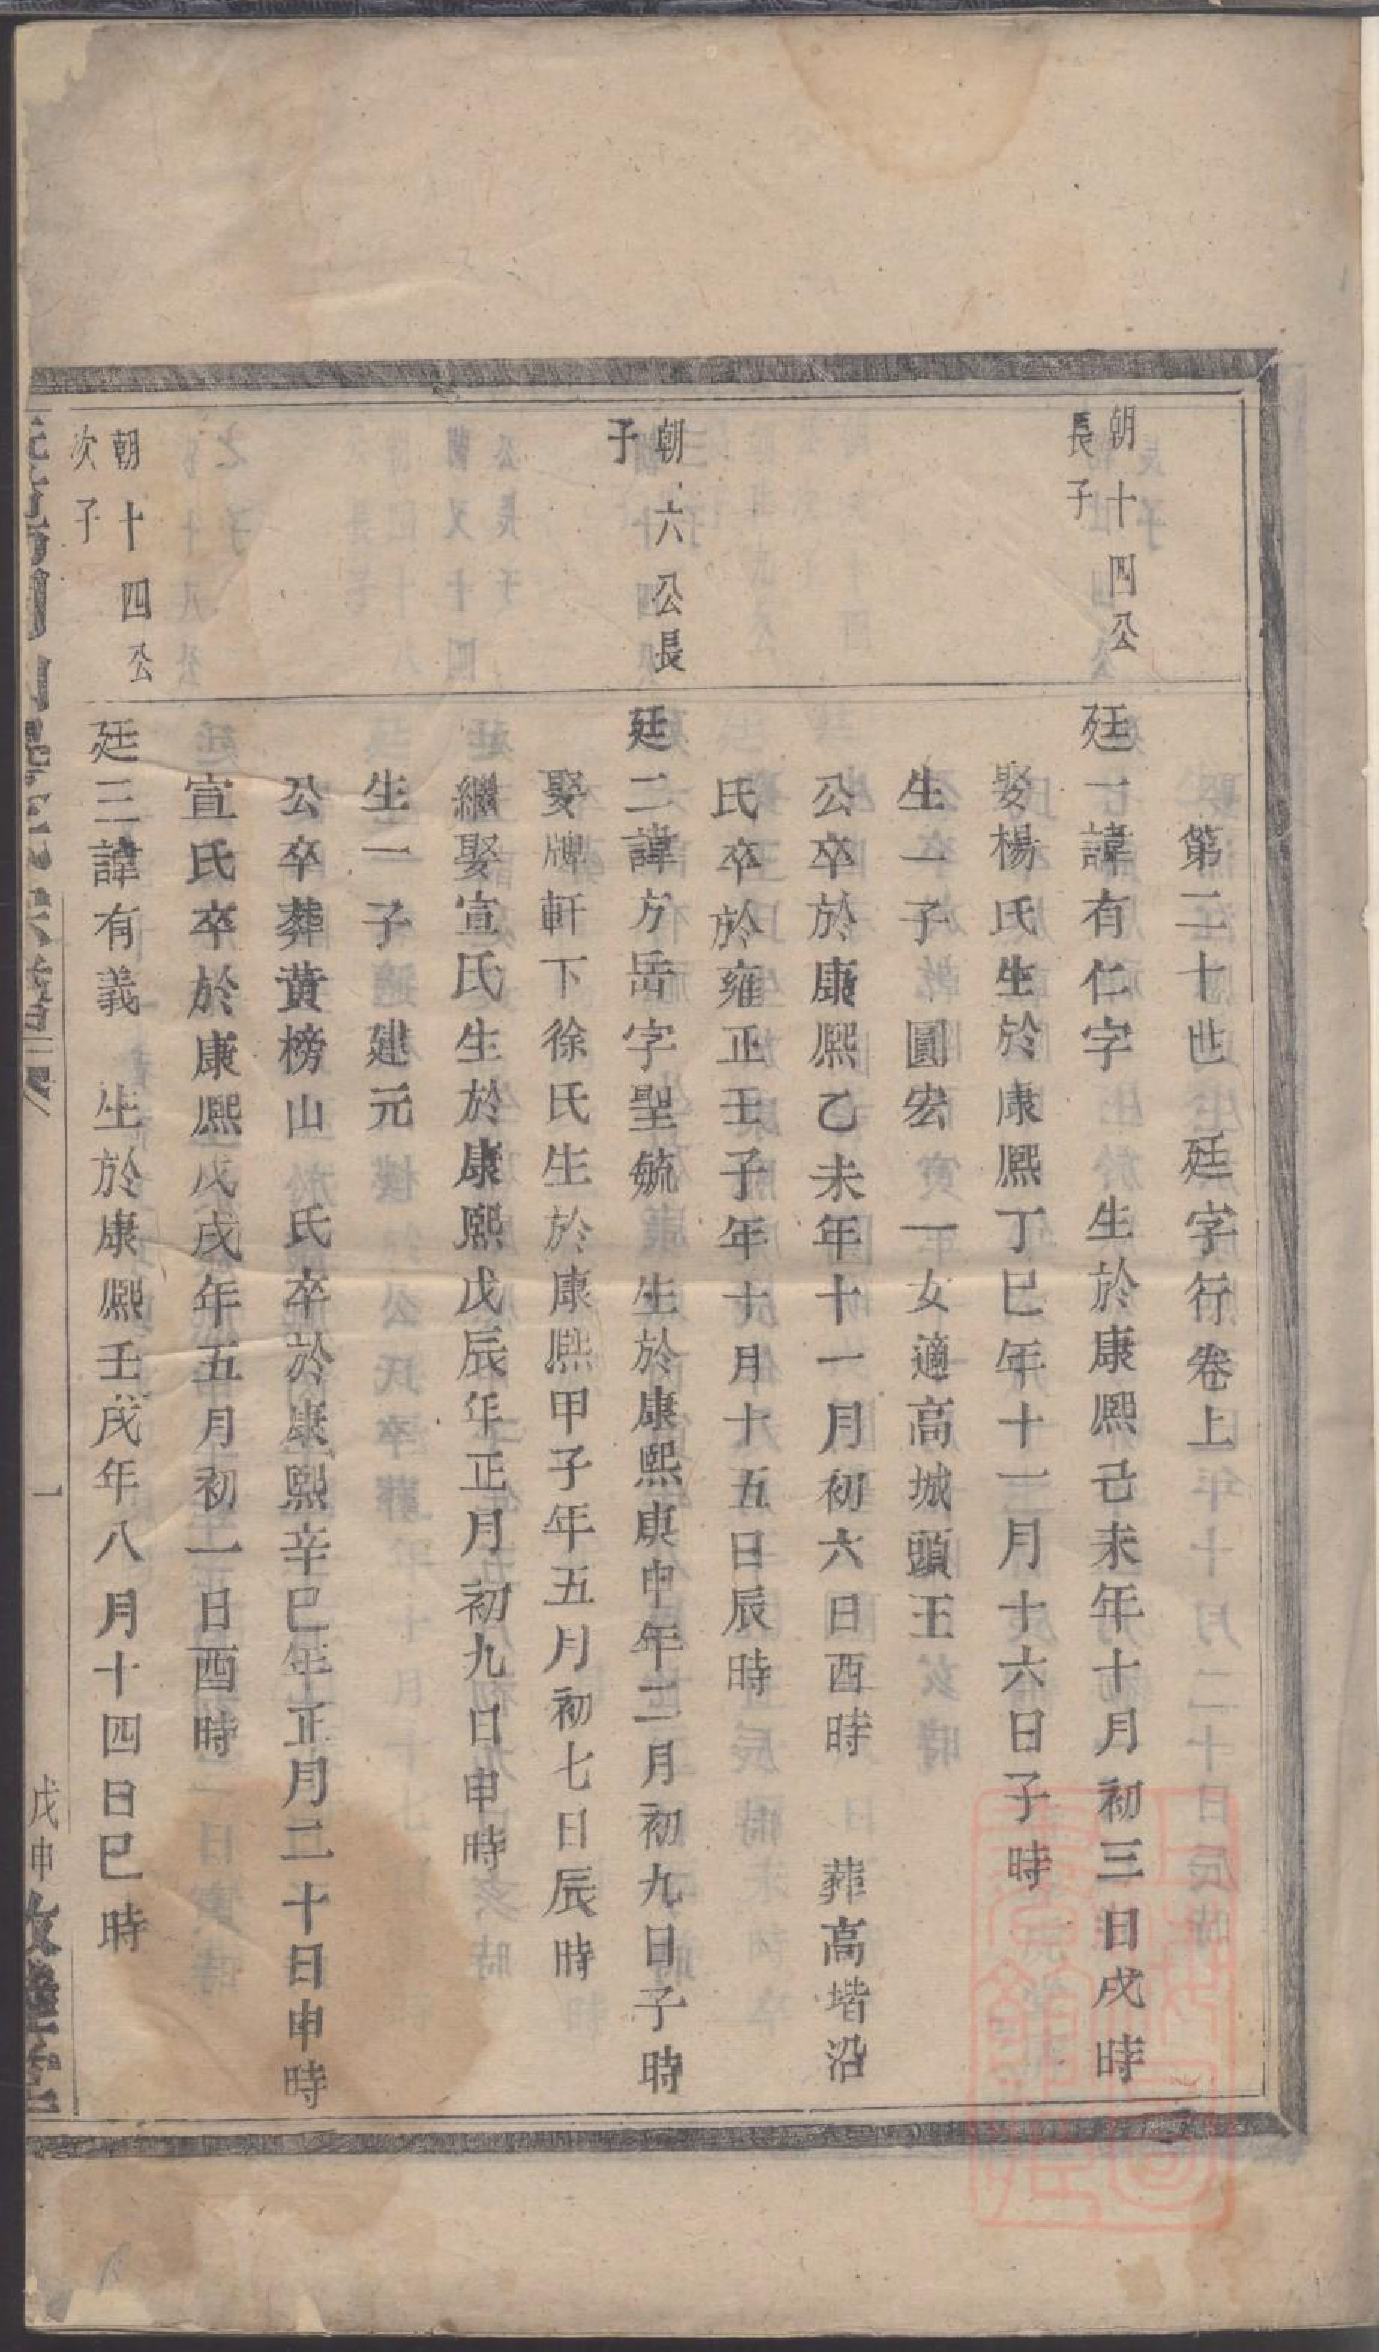 第二十世　廷字行卷上
朝十四公
長子
廷一諱有仁字　生於康熙己未年十月初三日戌時
娶楊氏生於康熙丁巳年十二月十六日子時
生一子　圓宏　一女適高城頭王
公卒於康熙乙未年十一月初六日酉時　葬高堦沿
氏卒於雍正壬子年十月十五日辰時
朝六公長
子
廷二諱方岳字聖毓　生於康熙庚申年二月初九日子時
娶牌軒下徐氏生於康熙甲子年五月初七日辰時
繼娶宣氏生於康熙戊辰年正月初九日申時
生一子建元
公卒葬黃榜山　氏卒於康熙辛巳年正月二十日申時
宣氏卒於康熙戊戌年五月初一日酉時
朝十四公
次子
廷三諱有義　生於康熙壬戌年八月十四日巳時
一
戊申